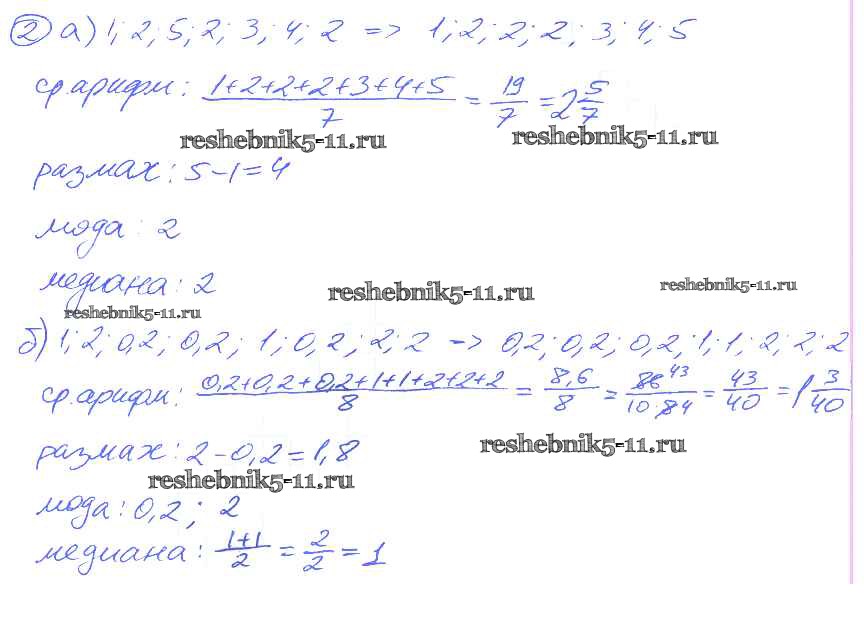 2 а) 1; 2; 5; 2; 3; 4; 2 => 1; 2; 2; 2; 3; 4; 5
ср.арифм: (1+2+2+2+3+4+5)/7 = 19/7 = 2 5/7
reshebnik5-11.ru reshebnik5-11.ru
размах: 5-1=4
мода: 2
медиана: 2
reshebnik5-11.ru reshebnik5-11.ru
reshebnik5-11.ru
б) 1; 2; 0,2; 0,2; 1; 0,2; 2; 2 -> 0,2; 0,2; 0,2; 1; 1; 2; 2; 2
ср.арифм: (0,2+0,2+0,2+1+1+2+2+2)/8 = 8,6/8 = 86 43/10·84 = 43/40 = 1 3/40
размах: 2-0,2=1,8
reshebnik5-11.ru
reshebnik5-11.ru
мода: 0,2; 2
медиана: (1+1)/2 = 2/2 = 1